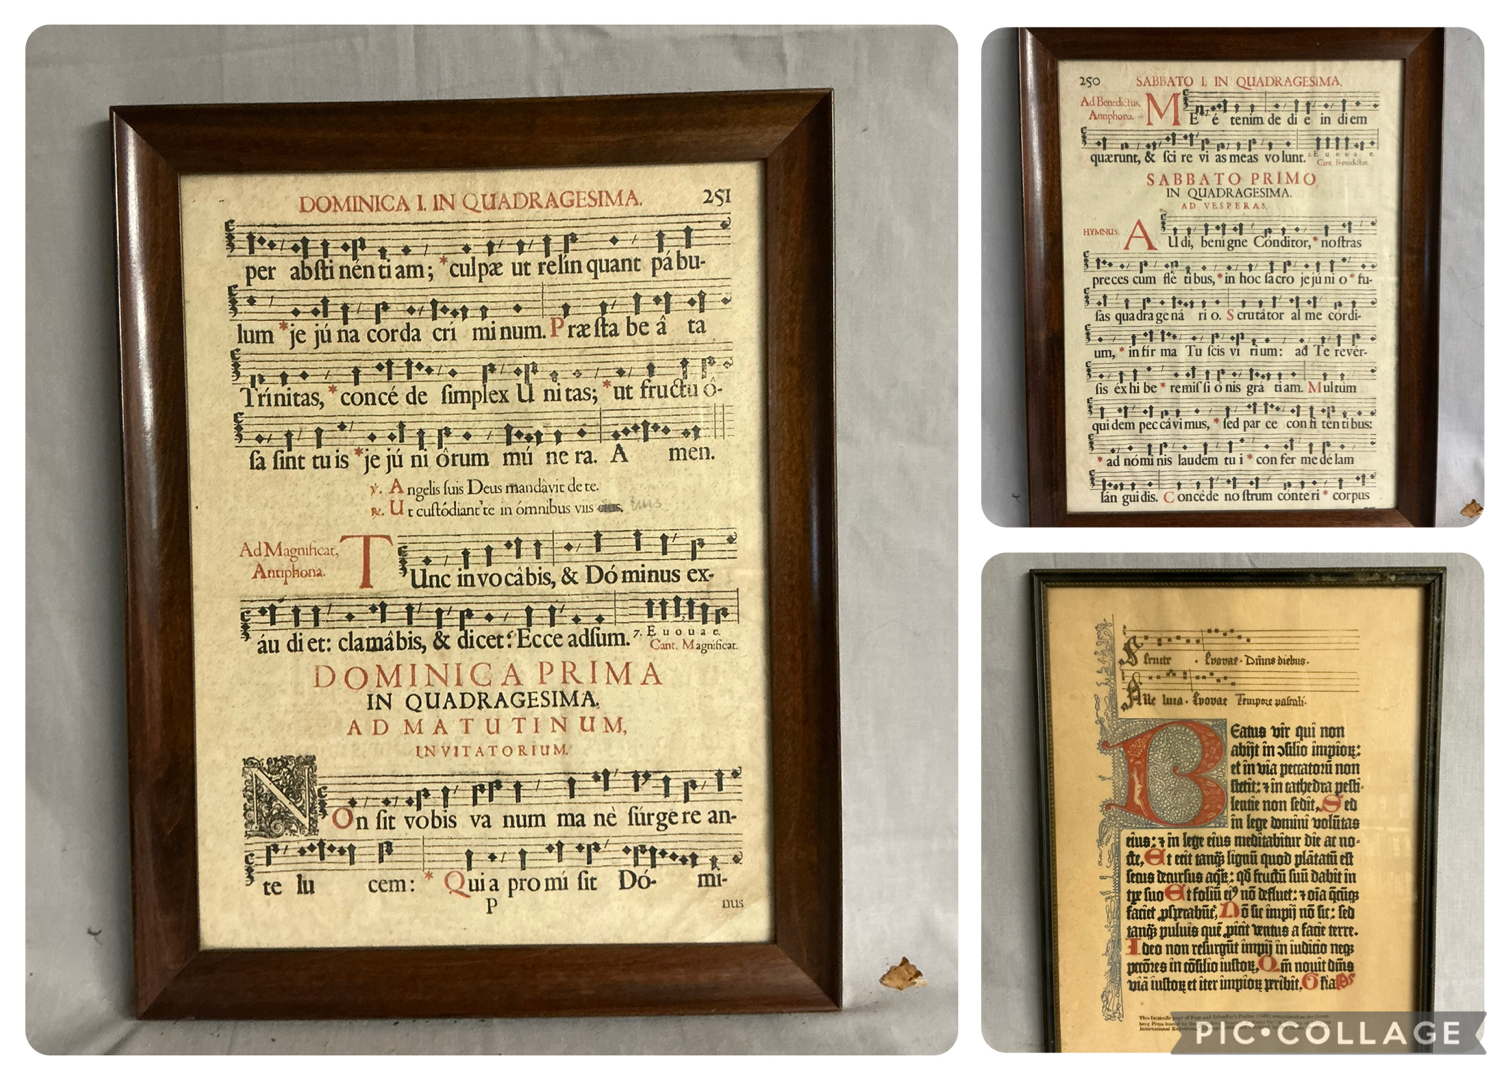 DOMINICA I. IN QUADRAGESIMA. 251
per absti nén ti am; *culpæ ut relín quant pá bu-
lum *je jú na corda crí mi num. Præ sta be â ta
Trínitas, *concé de simplex U ni tas; *ut fructu ó-
sa sint tu is *je jú ni ôrum mú ne ra. A men.
℣. Angelis suis Deus mandávit de te.
℟. Ut custódiant te in ómnibus viis
Ad Magnificat, Antiphona.
TUnc invocâbis, & Dóminus ex-
áu di et: clamâbis, & dicet: Ecce adsum. 7. E u o u a e.
Cant. Magnificat.
DOMINICA PRIMA
IN QUADRAGESIMA,
AD MATUTINUM,
INVITATORIUM.
NOn sit vobis va num ma nè súrge re an-
te lu cem: * Quia pro mí sit Dó- mi-
P nus
250 SABBATO I. IN QUADRAGESIMA.
Ad Benedictus, Antiphona.
ME é tenim de di e in di em
quærunt, & sci re vi as meas vo lunt. E u o u a e.
Cant. Benedictus.
SABBATO PRIMO
IN QUADRAGESIMA.
AD VESPERAS.
HYMNUS.
AUdi, beni gne Cónditor, * nostras
preces cum flé tibus, *in hoc sa cro je jú ni o * fu-
sas quadra ge ná ri o. Scrutátor al me córdi-
um, * in fír ma Tu scis vi rium: ad Te revér-
sis éx hi be * remis si ó nis grá ti am. Multum
qui dem pec cá vi mus, * sed par ce con fi ten ti bus:
* ad nómi nis laudem tu i * con fer me dé lam
lán gui dis. Concéde no strum cónte ri * corpus
Servite . Evovae . Dominus diebus.
Alle luia . Evovae Tempore pascali.
Beatus vir qui non
abijt in ↄsilio impioꝝ:
et in via peccatoꝝ non
stetit: ⁊ in cathedra pesti-
lentie non sedit, Sed
in lege domini volūtas
eius: ⁊ in lege eius meditabitur die ac no-
cte, Et erit tanq̄ lignū quod plātatū est
secus decursus aqꝝ: qd̄ fructū suū dabit in
tꝑe suo Et foliū eiꝰ nō defluet: ⁊ oīa q̄cūqꝫ
faciet ꝓsperabūt, Nō sic impij nō sic: sed
tanq̄ puluis quē ꝓicit ventus a facie terre.
Ideo non resurgūt impij in iudicio neqꝫ
peccōres in cōsilio iustoꝝ, Qm̄ nouit dn̄s
viā iustoꝝ et iter impioꝝ peribit, Glia
This facsimile page of Fust and Schoeffer's Psalter
PIC•COLLAGE